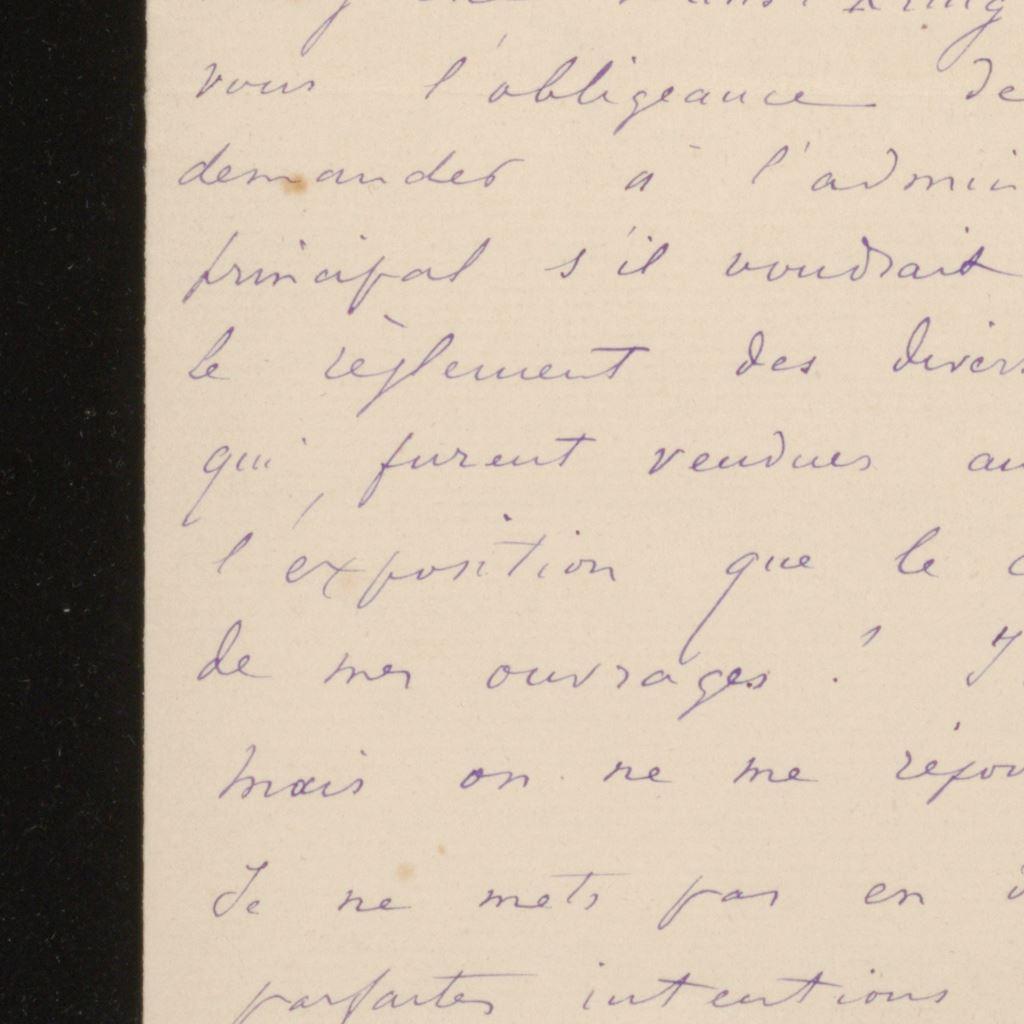 vous l'obligeance de
demander à l'admin
principal s'il voudrait
le règlement des divers
qui furent vendues au
l'exposition que le
de mes ouvrages ?
mais on ne me répon
Je ne mets pas en d
parfaites intentions